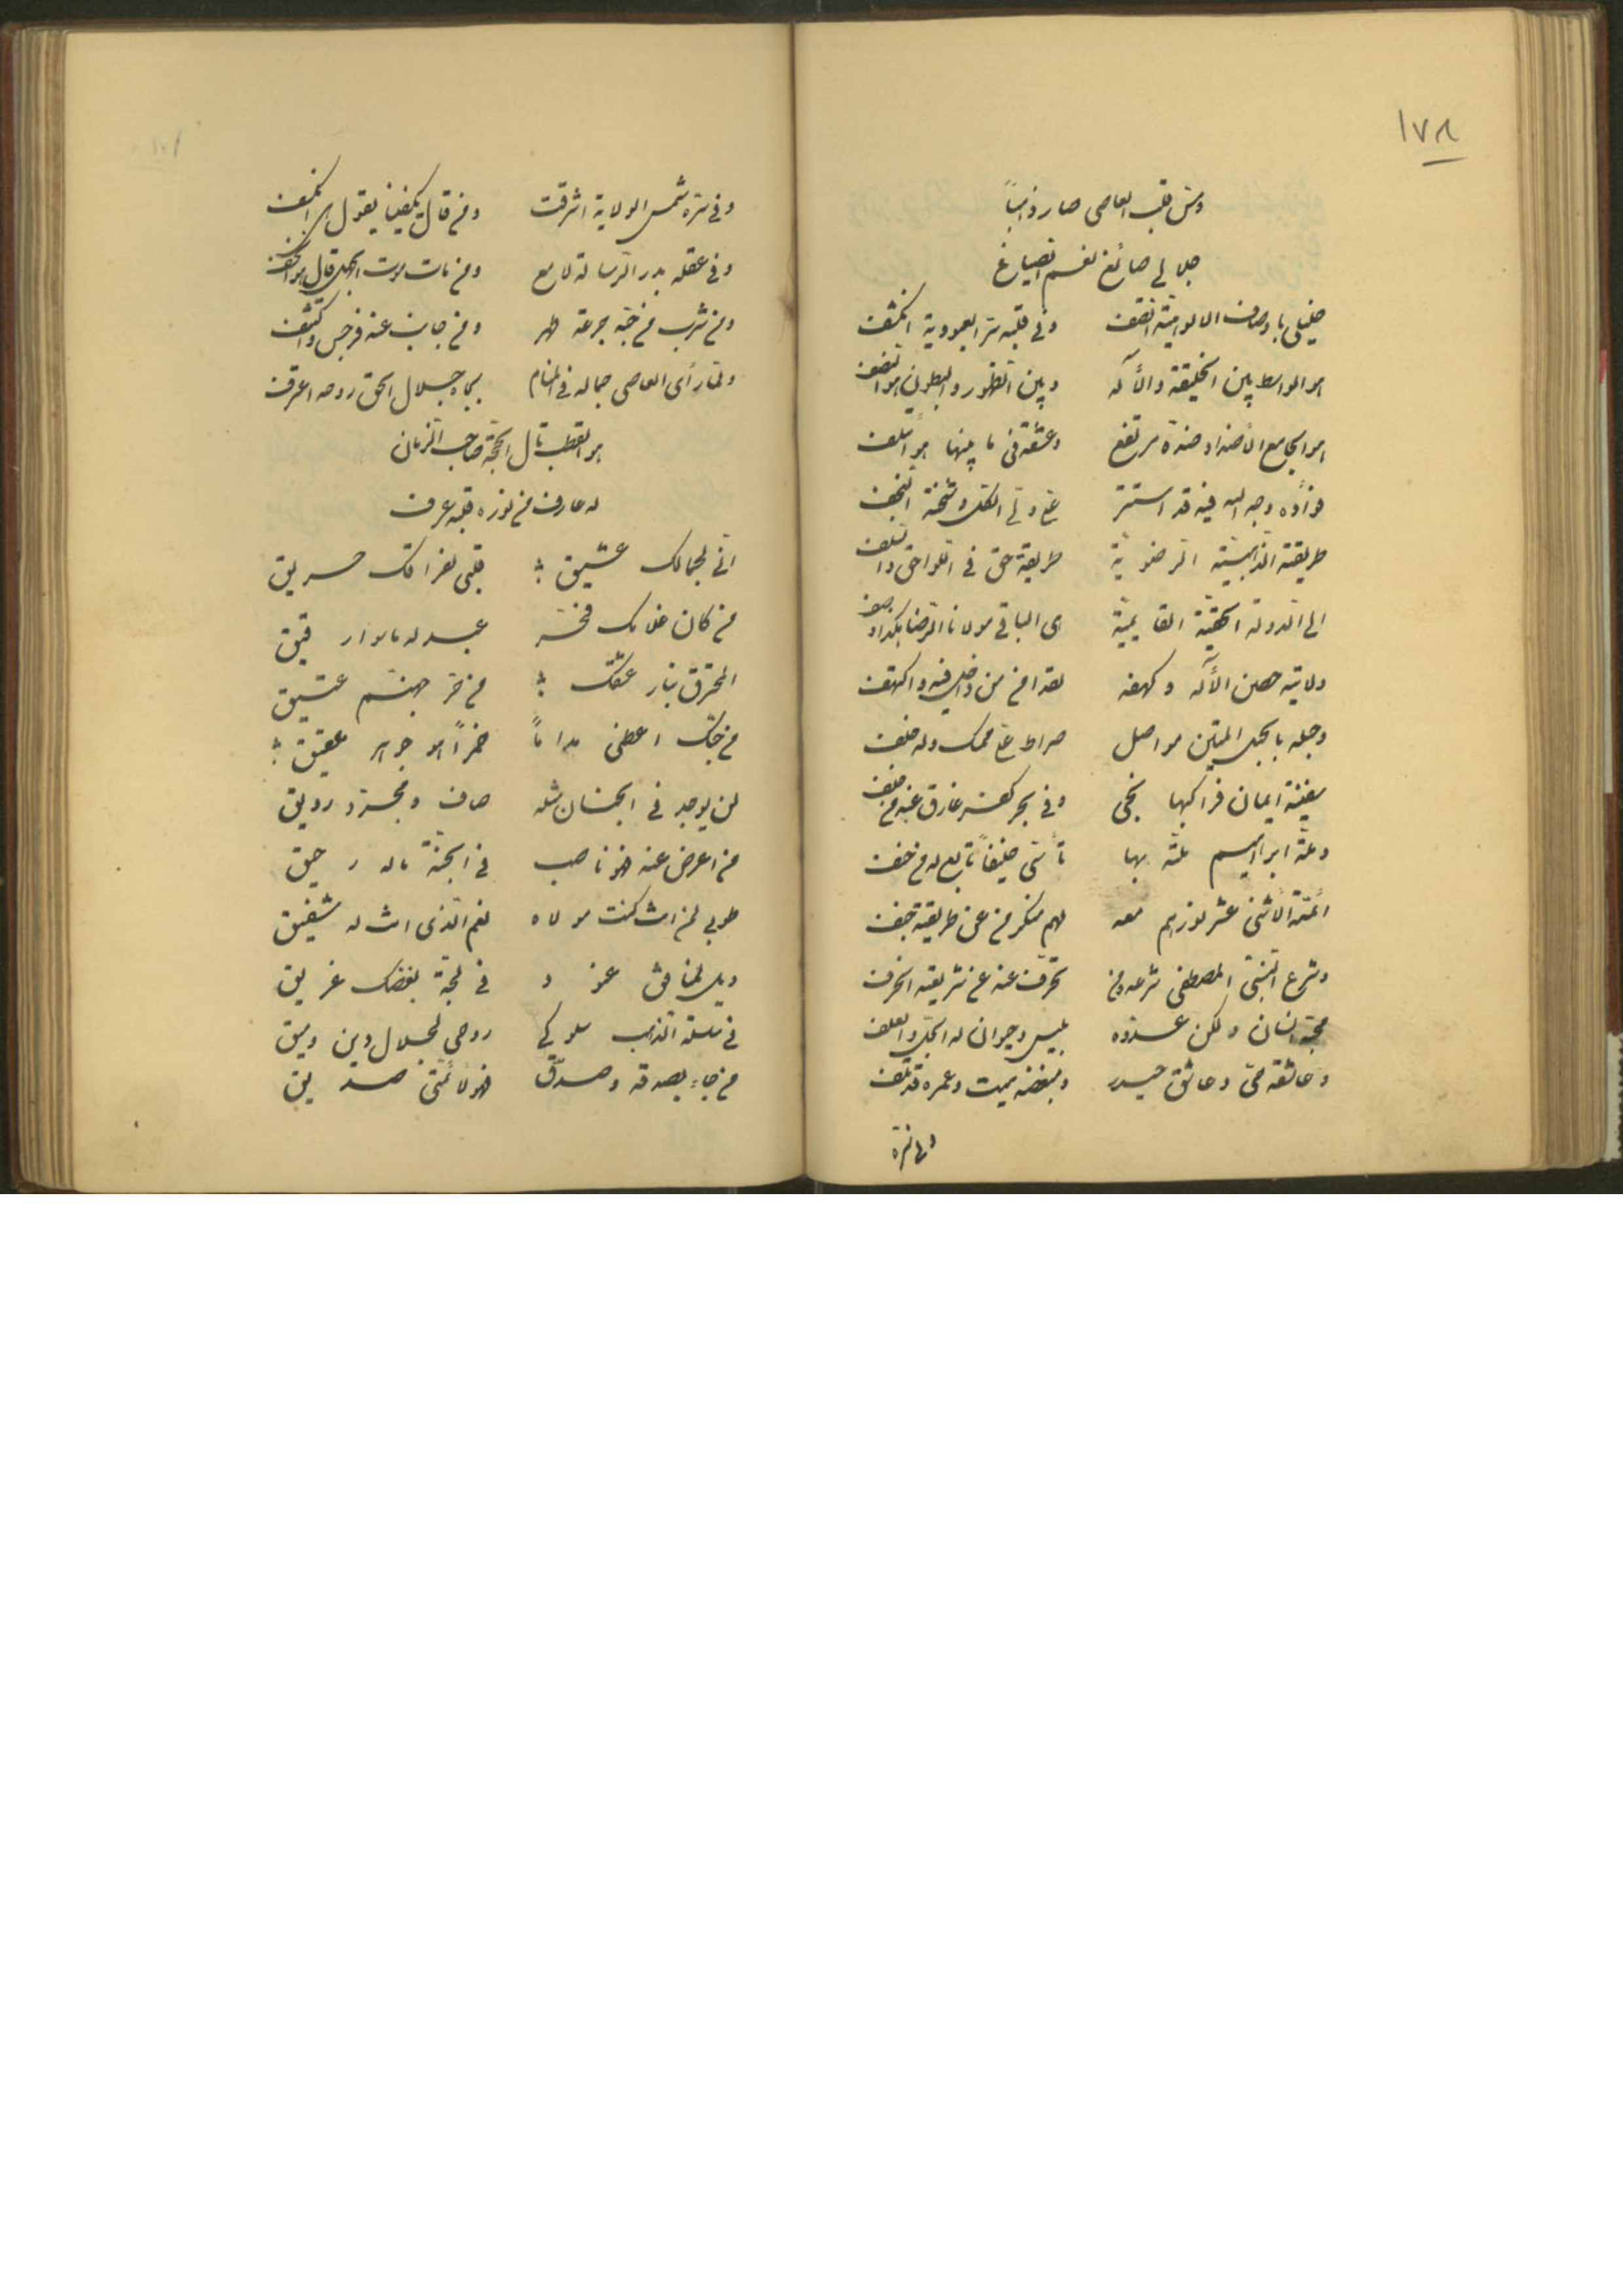 ١٧٨
ومن قلب العاصی صار ذاهباً
جلالی صائغ نعم الصیاغ
خلیلی باوصاف الالوهیّة اتّصف وفی قلبه سرّ العبودیة انکشف
هو الواسط بین الخلیقة والأله وبین الظهور والبطون هو انتصف
هو الجامع الأضداد ضدّه مرتفع وعشقه فی ما بینها هو ائتلف
فؤاده وجه الله فیه قد استتر
طریقته الذهبیّة الرضویّة طریقة حق فی
الی الدولة الحقیّة القایمیّة هی الباقی مولانا الرضا
ولایته حصن الأله وکهفه لقد امن من داخل فیه واکتهف
وحبله بالحبل المتین مواصل صراط
سفینة ایمان فراکبها نجی وفی بحر کفر غارق عنه من خلف
وملّة ابراهیم ملّته بها تأسّی حنیفاً تابع له من حنف
ائمّة الأثنی عشر نورهم معه لهم منکر من عن طریقته جنف
وشرع النبی المصطفی شرعه ومن تحرّف عنه عن شریعته انحرف
محبّه انسان ولکن عدوّه بلیس وحیوان له الجلّ والعلف
وعاشقه حیّ وعاشق حیدر ومبغضه میت وعمره قد تلف
وفی سرّه
وفی سرّه شمس الولایة اشرقت ومن قال یکفینا یقول هی انکسف
وفی عقله بدر الرسالة لامع ومن مات موت الجهل قال هو انخسف
ومن شرب من حبّه جرعة طهر ومن جانب عنه فرجس
ولمّا رأی العاصی جماله فی المنام بجاه جلال الحق روحه اعترف
هو القطب قال الحجّة صاحب الزمان
له عارف من نوره قلبه عرف
انّی لجمالک عشیق قلبی لفراقک حریق
من کان غلامک فخر عبد له ماسواک رقیق
المحترق بنار عشقک من حرّ جهنّم عتیق
من حبّک اعطنی مداماً خمراً هو جوهر عقیق
لن یوجد فی الجنان مثله صاف ومجرّد رویق
من اعرض عنه فهو ناصب فی الجنّة ماله رحیق
طوبی لمن انت کنت مولاه نعم الّذی انت له شفیق
ویل لمنافق عنود فی لجّة بغضک غریق
فی سلسلة الذهب سلوکی روحی لجلال دین وسیق
من جاء بصدقه وصدّق فهو لائمّتی صدیق